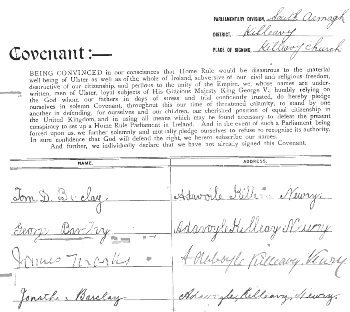 PARLIAMENTARY DIVISION, South Armagh
DISTRICT, Killeavy
PLACE OF SIGNING, Killeavy Church
Covenant:—
BEING CONVINCED in our consciences that Home Rule would be disastrous to the material
well being of Ulster as well as of the whole of Ireland, subversive of our civil and religious freedom,
destructive of our citizenship, and perilous to the unity of the Empire, we, whose names are under-
written, men of Ulster, loyal subjects of His Gracious Majesty King George V., humbly relying on
the God whom our fathers in days of stress and trial confidently trusted, do hereby pledge
ourselves in solemn Covenant, throughout this our time of threatened calamity, to stand by one
another in defending, for ourselves and our children, our cherished position of equal citizenship in
the United Kingdom, and in using all means which may be found necessary to defeat the present
conspiracy to set up a Home Rule Parliament in Ireland. And in the event of such a Parliament being
forced upon us, we further solemnly and mutually pledge ourselves to refuse to recognise its authority.
In sure confidence that God will defend the right, we hereto subscribe our names.
And further, we individually declare that we have not already signed this Covenant.
NAME. ADDRESS.
Barclay Newry
Killeavy Newry
James Killeavy Newry
Barclay Killeavy, Newry